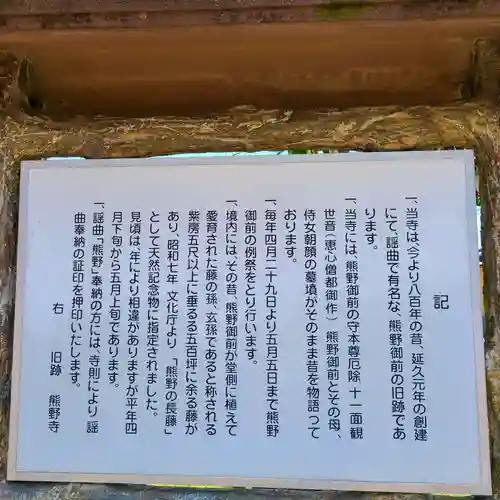 記
一、当寺は、今より八百年の昔、延久元年の創建
にて、謡曲で有名な、熊野御前の旧跡であ
ります。
一、当寺には、熊野御前の守本尊厄除十一面観
世音(恵心僧都御作)熊野御前とその母、
侍女朝顔の墓墳がそのまま昔を物語って
おります。
一、毎年四月二十九日より五月五日まで熊野
御前の例祭をとり行います。
一、境内には、その昔、熊野御前が堂側に植えて
愛育された藤の孫、玄孫であると称される
紫房五尺以上に垂るる五百坪に余る藤が
あり、昭和七年 文化庁より 「熊野の長藤」
として天然記念物に指定されました。
見頃は、年により相違がありますが平年四
月下旬から五月上旬であります。
一、謡曲「熊野」奉納の方には、寺則により謡
曲奉納の証印を押印いたします。
右 旧跡 熊野寺